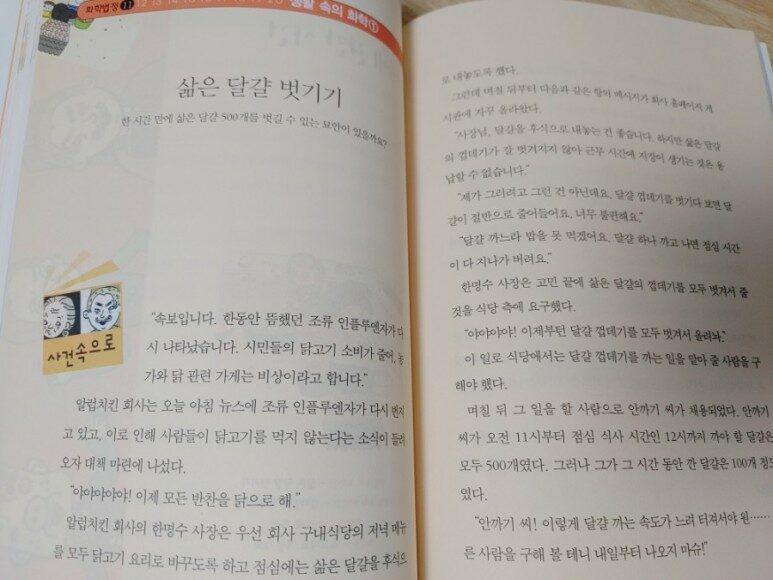 화학법정 11 12 13 14 15 16 17 18 19 20 생활 속의 화학①
삶은 달걀 벗기기
한 시간 만에 삶은 달걀 500개를 벗길 수 있는 묘안이 있을까요?
사건속으로
“속보입니다. 한동안 뜸했던 조류 인플루엔자가 다
시 나타났습니다. 시민들의 닭고기 소비가 줄어, 농
가와 닭 관련 가게는 비상이라고 합니다.”
알럽치킨 회사는 오늘 아침 뉴스에 조류 인플루엔자가 다시 번지
고 있고, 이로 인해 사람들이 닭고기를 먹지 않는다는 소식이 들려
오자 대책 마련에 나섰다.
“야야야야야! 이제 모든 반찬을 닭으로 해.”
알럽치킨 회사의 한명수 사장은 우선 회사 구내식당의 저녁 메뉴
를 모두 닭고기 요리로 바꾸도록 하고 점심에는 삶은 달걀을 후식으
로 내놓도록 했다.
그런데 며칠 뒤부터 다음과 같은 항의 메시지가 회사 홈페이지 게
시판에 자꾸 올라왔다.
“사장님, 달걀을 후식으로 내놓는 건 좋습니다. 하지만 삶은 달걀
의 껍데기가 잘 벗겨지지 않아 근무 시간에 지장이 생기는 것은 용
납할 수 없습니다.”
“제가 그러려고 그런 건 아닌데요, 달걀 껍데기를 벗기다 보면 달
걀이 절반으로 줄어들어요. 너무 불편해요.”
“달걀 까느라 밥을 못 먹겠어요. 달걀 하나 까고 나면 점심 시간
이 다 지나가 버려요.”
한명수 사장은 고민 끝에 삶은 달걀의 껍데기를 모두 벗겨서 줄
것을 식당 측에 요구했다.
“야야야야! 이제부턴 달걀 껍데기를 모두 벗겨서 올려놔.”
이 일로 식당에서는 달걀 껍데기를 까는 일을 맡아 줄 사람을 구
해야 했다.
며칠 뒤 그 일을 할 사람으로 안까기 씨가 채용되었다. 안까기
씨가 오전 11시부터 점심 식사 시간인 12시까지 까야 할 달걀은
모두 500개였다. 그러나 그가 그 시간 동안 깐 달걀은 100개 정도
였다.
“안까기 씨! 이렇게 달걀 까는 속도가 느려 터져서야 원……
른 사람을 구해 볼 테니 내일부터 나오지 마슈!”